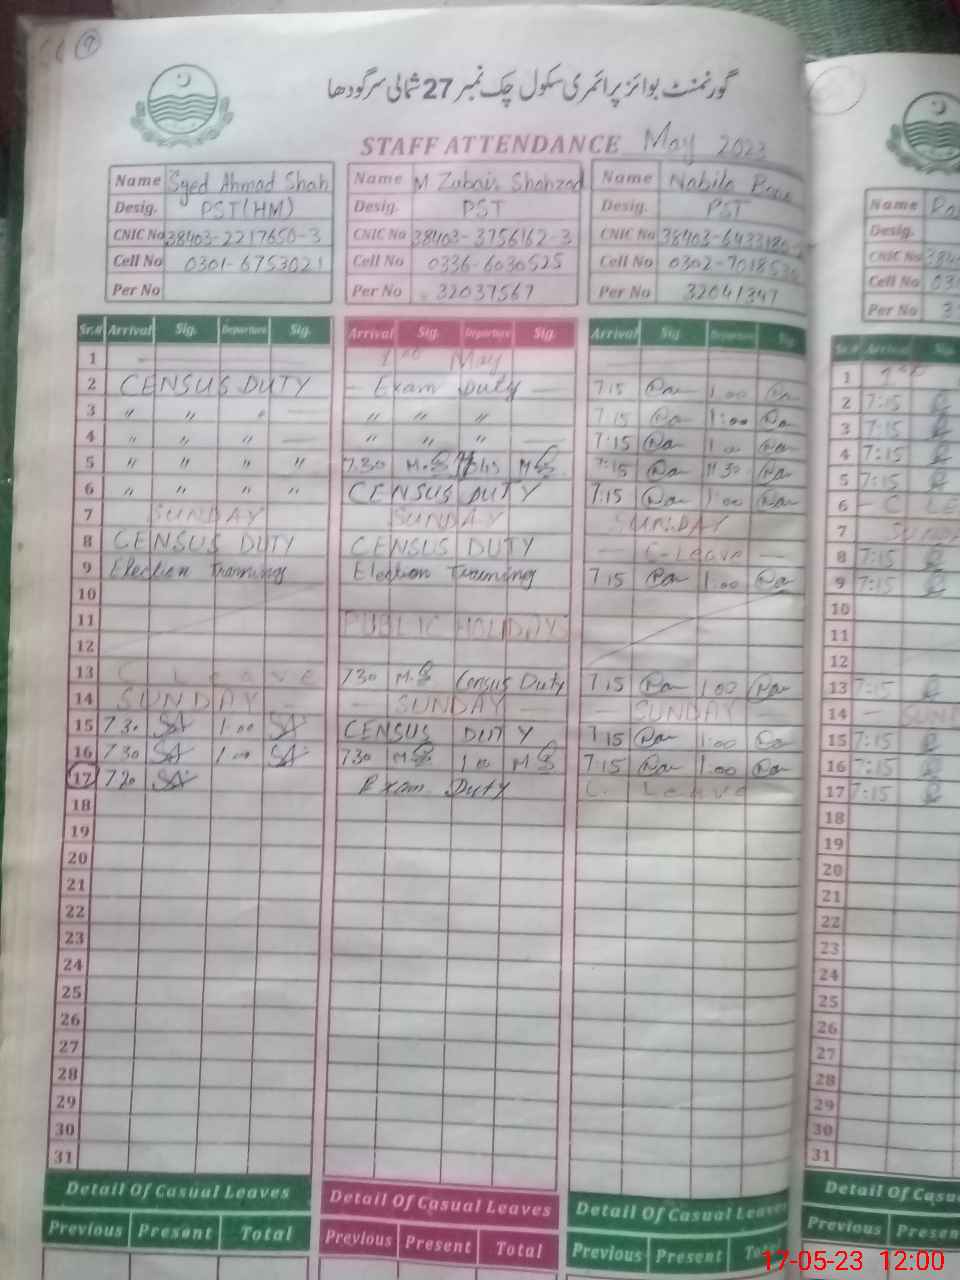 9
گورنمنٹ بوائز پرائمری سکول چک نمبر 27 شمالی سرگودھا
STAFF ATTENDANCE May 2023
Name Syed Ahmad Shah Name M Zubair Shahzad Name Nabila
Desig. PST(HM) Desig. PST Desig. PST Name
CNIC No 38403-2217650-3 CNIC No 38403-3756162-3 CNIC No 38403- Desig.
Cell No 0301-6753021 Cell No 0336-6030525 Cell No 0302- CNIC No
Per No Per No 32037567 Per No 32041347 Cell No
Per No
Sr.# Arrival Sig. Departure Sig. Arrival Sig. Departure Sig. Arrival Sig. Departure Sig. Sr.# Arrival Sig.
1 - 1st May 1
2 CENSUS DUTY - Exam Duty - 7 15 1:00 2 7:15
3 〃 〃 〃 - 〃 〃 〃 7 15 1:00 3 7:15
4 〃 〃 〃 - 〃 〃 〃 - 7:15 1:00 4 7:15
5 〃 〃 〃 〃 7.30 M.S M S 7:15 11 30 5 7:15
6 〃 〃 〃 〃 CENSUS DUTY 7:15 1:00 6 - C LE
7 SUNDAY SUNDAY SUNDAY 7 SUNDAY
8 CENSUS DUTY CENSUS DUTY - C-Leave - 8 7:15
9 Election Training Election Training 7 15 1:00 9 7:15
10 10
11 PUBLIC HOLIDAYS 11
12 12
13 C Leave 7 30 M.S Census Duty 7 15 1 00 13 7:15
14 SUNDAY - - SUNDAY - - SUNDAY - 14 - SUN
15 7 30 1:00 CENSUS DUTY 7 15 1:00 15 7:15
16 7 30 1:00 7 30 M S 1 00 M S 7:15 1:00 16 7:15
17 7 20 Exam Duty C. Leave 17 7:15
18 18
19 19
20 20
21 21
22 22
23 23
24 24
25 25
26 26
27 27
28 28
29 29
30 30
31 31
Detail Of Casual Leaves Detail Of Casual Leaves Detail Of Casual Leaves Detail Of Casu
Previous Present Total Previous Present Total Previous Present Total Previous Presen
17-05-23 12:00